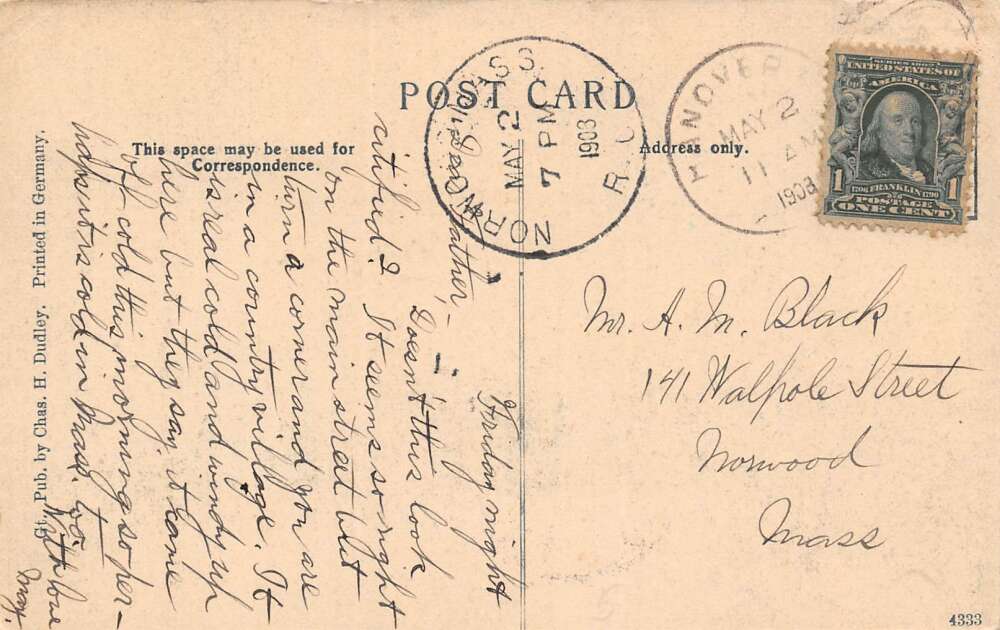 POST CARD
This space may be used for
Correspondence.
Address only.
NORWOOD, MASS.
MAY 2
7 PM
1908
HANOVER
MAY 2
11 AM
1908
UNITED STATES OF
AMERICA
1 1
1706 FRANKLIN 1790
POSTAGE
ONE CENT
Friday night
Dear Father,—
Doesn't this look
citified? It seems so right
on the main street but
turn a corner and you are
in a country village. It
is real cold and windy up
here but they say it came
off cold this morning so per-
haps it is cold in Mass. too.
With love
May.
Mr. A. M. Black
141 Walpole Street
Norwood
Mass
Pub. by Chas. H. Dudley. Printed in Germany.
4333